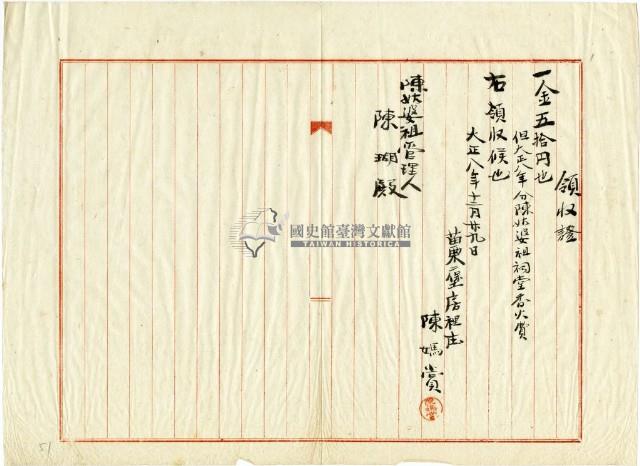 領収證
一金五拾円也
但大正八年分陳姑婆祖祠堂香火費
右領収候也
大正八年十二月廿九日
苗栗二堡房裡庄
陳媽賞
陳姑婆祖管理人
陳瑚殿
國史館臺灣文獻館
TAIWAN HISTORICA
51